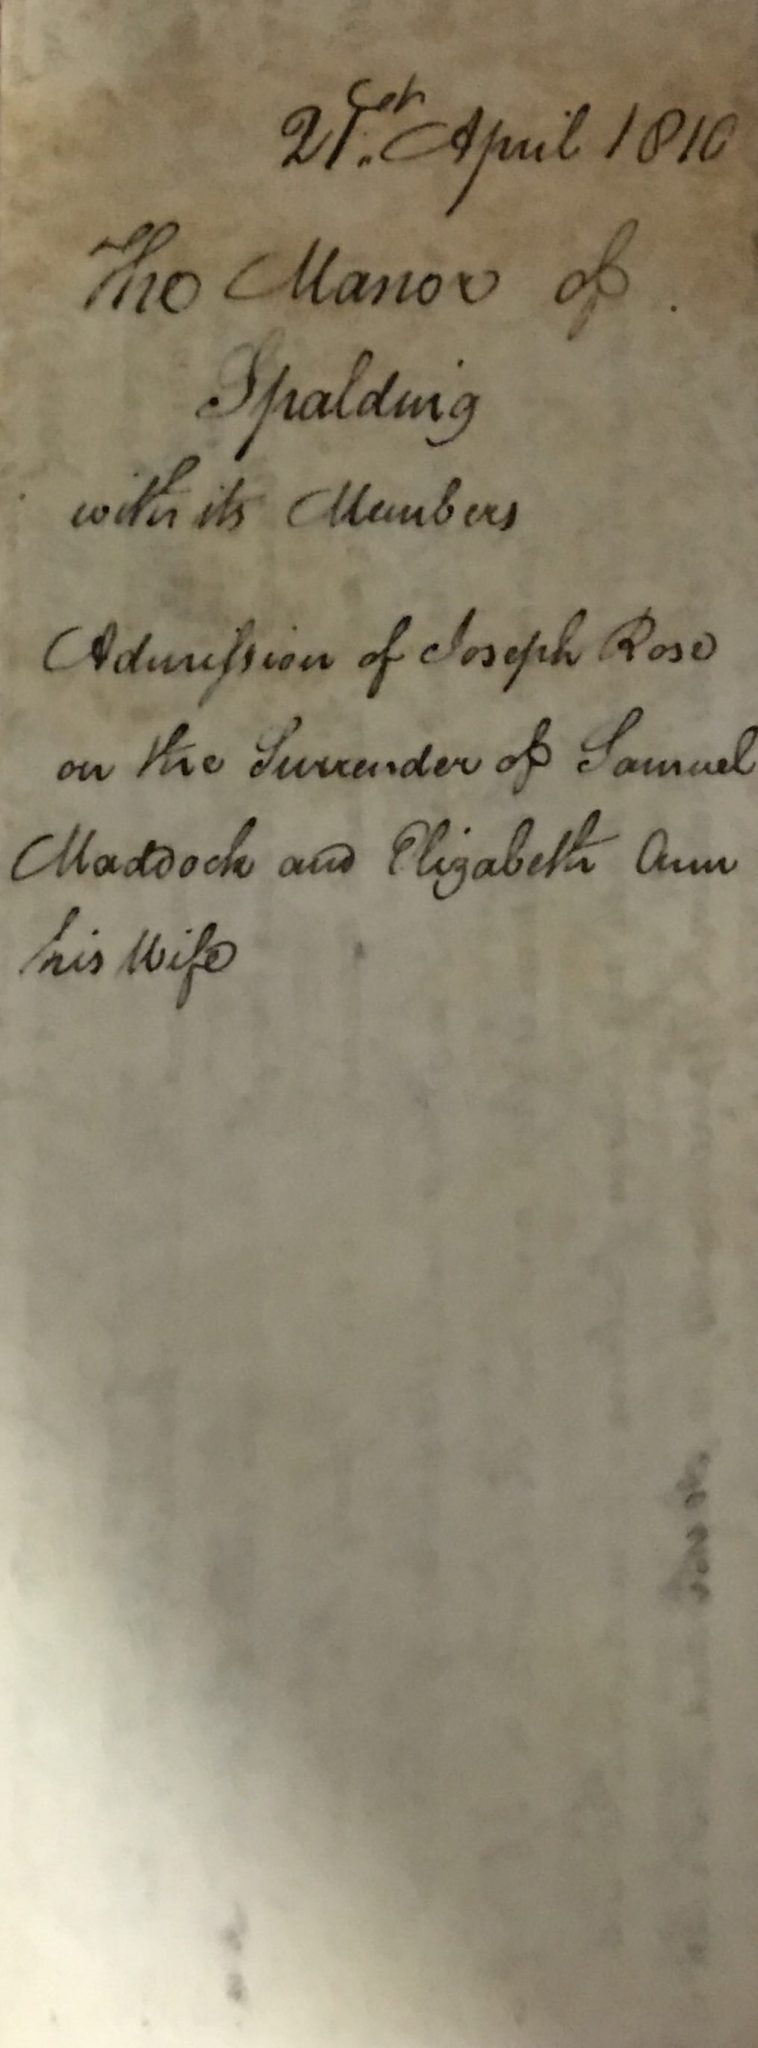 21st April 1810
The Manor of
Spalding
with its Members
Admission of Joseph Rose
on the Surrender of Samuel
Maddock and Elizabeth Ann
his Wife